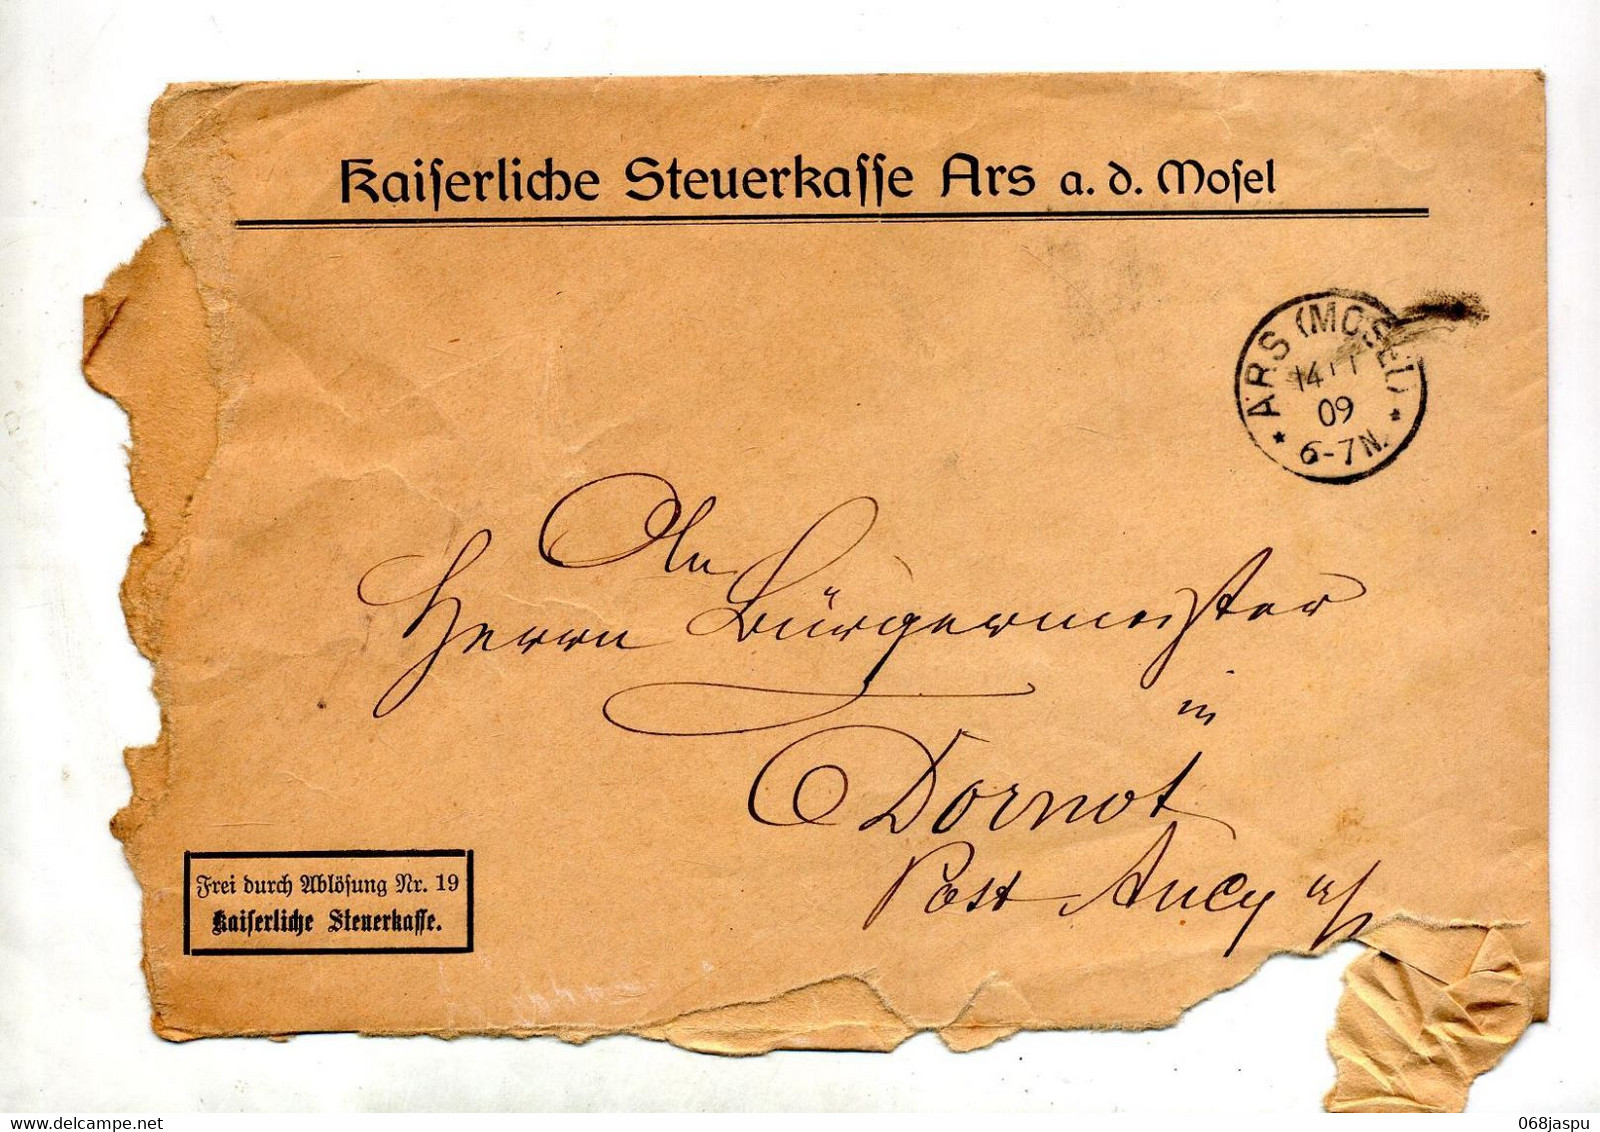 Kaiserliche Steuerkasse Ars a. d. Mosel
ARS (MOSEL)
09
6-7N.
An
Herrn Bürgermeister
in
Dornot
Post Ancy a/
Frei durch Ablösung Nr. 19
Kaiserliche Steuerkasse.
068jaspu